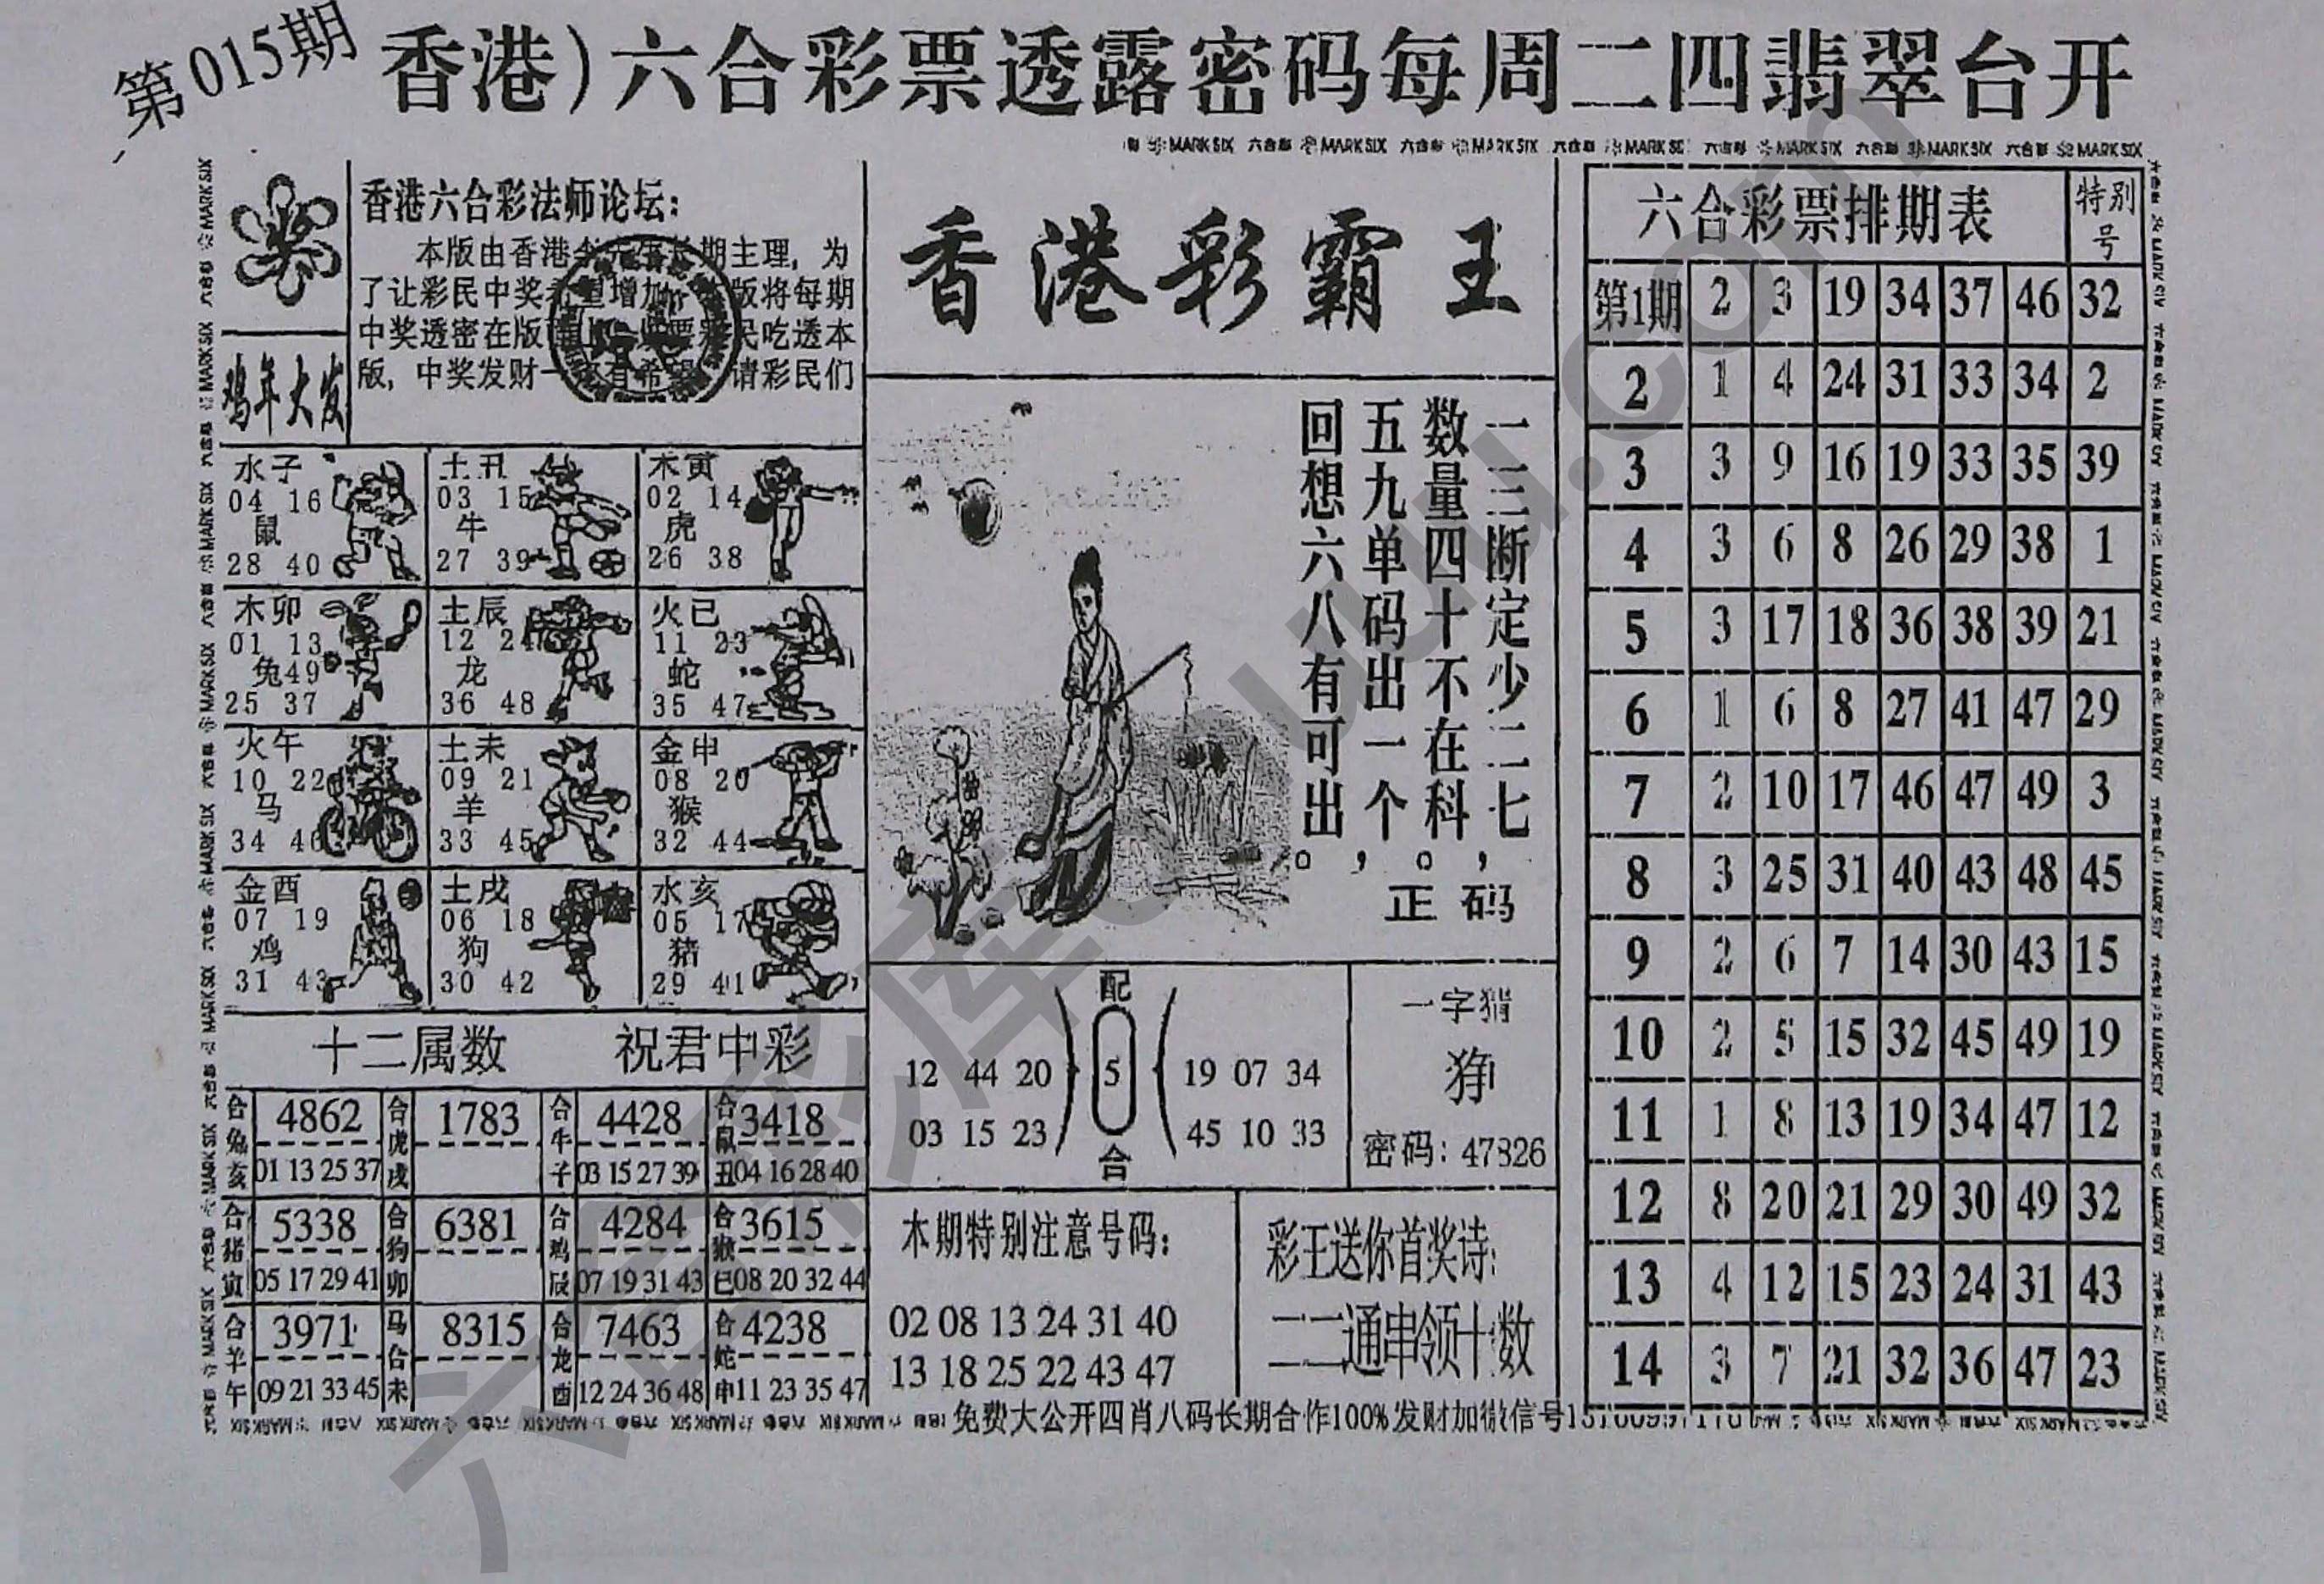 第015期
香港)六合彩票透露密码每周二四翡翠台开
鸡年大发
香港六合彩法师论坛:
本版由香港 期主理,为
了让彩民中奖希望增加 版将每期
中奖透密在版 民吃透本
版,中奖发财一 有希望 请彩民们
水子
04 16
鼠
28 40
土丑
03 15
牛
27 39
木寅
02 14
虎
26 38
木卯
01 13
兔49
25 37
土辰
12 24
龙
36 48
火已
11 23
蛇
35 47
火午
10 22
马
34 46
土未
09 21
羊
33 45
金申
08 20
猴
32 44
金酉
07 19
鸡
31 43
土戌
06 18
狗
30 42
水亥
05 17
猪
29 41
十二属数 祝君中彩
合兔亥 4862 01 13 25 37
合虎戌 1783
合牛子 4428 03 15 27 39
合鼠丑 3418 04 16 28 40
合猪寅 5338 05 17 29 41
合狗卯 6381
合鸡辰 4284 07 19 31 43
合猴巳 3615 08 20 32 44
合羊午 3971 09 21 33 45
马合未 8315
合龙酉 7463 12 24 36 48
合蛇申 4238 11 23 35 47
香港彩霸王
一三断定少二七,
数量四十不在科。
五九单码出一个,
回想六八有可出。
正码
配
12 44 20 5 19 07 34
03 15 23 45 10 33
合
一字猜
狰
密码:47826
本期特别注意号码:
02 08 13 24 31 40
13 18 25 22 43 47
彩王送你首奖诗:
二二通串领十数
六合彩票排期表 特别号
第1期 2 3 19 34 37 46 32
2 1 4 24 31 33 34 2
3 3 9 16 19 33 35 39
4 3 6 8 26 29 38 1
5 3 17 18 36 38 39 21
6 1 6 8 27 41 47 29
7 2 10 17 46 47 49 3
8 3 25 31 40 43 48 45
9 2 6 7 14 30 43 15
10 2 5 15 32 45 49 19
11 1 8 13 19 34 47 12
12 8 20 21 29 30 49 32
13 4 12 15 23 24 31 43
14 3 7 21 32 36 47 23
免费大公开四肖八码长期合作100%发财加微信号